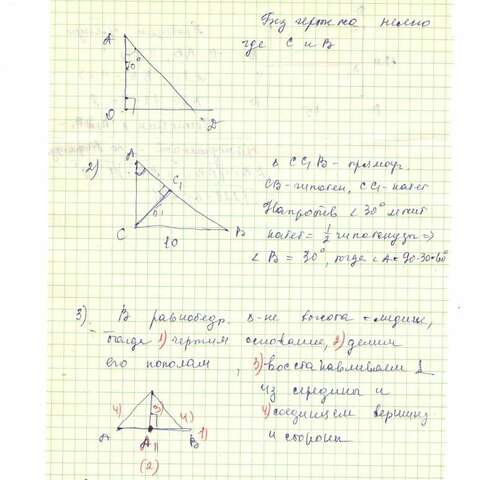 Без чертежа неясно
где С и В
А
О
D
2)
А
С₁
С
10
В
Δ СС₁В - прямоуг.
СВ-гипотен, СС₁-катет
Напротив ∠30° лежит
катет = 1/2 гипотенузы =>
∠ В = 30°, тогда ∠A = 90-30=60°
3) В равнобедр. Δ-не высота = медиане,
тогда 1) чертим основание, 2) делим
его пополам, 3) восстанавливаем ⊥
из середины и
4) соединяем вершину
и стороны
4) 3) 4)
А А В 1)
(2)